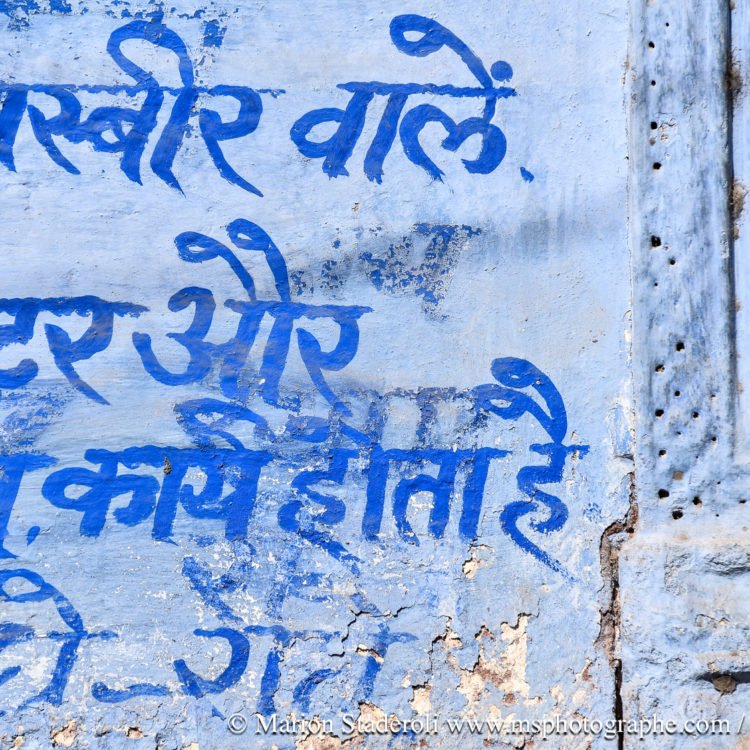 स्बीर वालें.
टर और
कार्य होता है
© Marion Staderoli www.msphotographe.com /